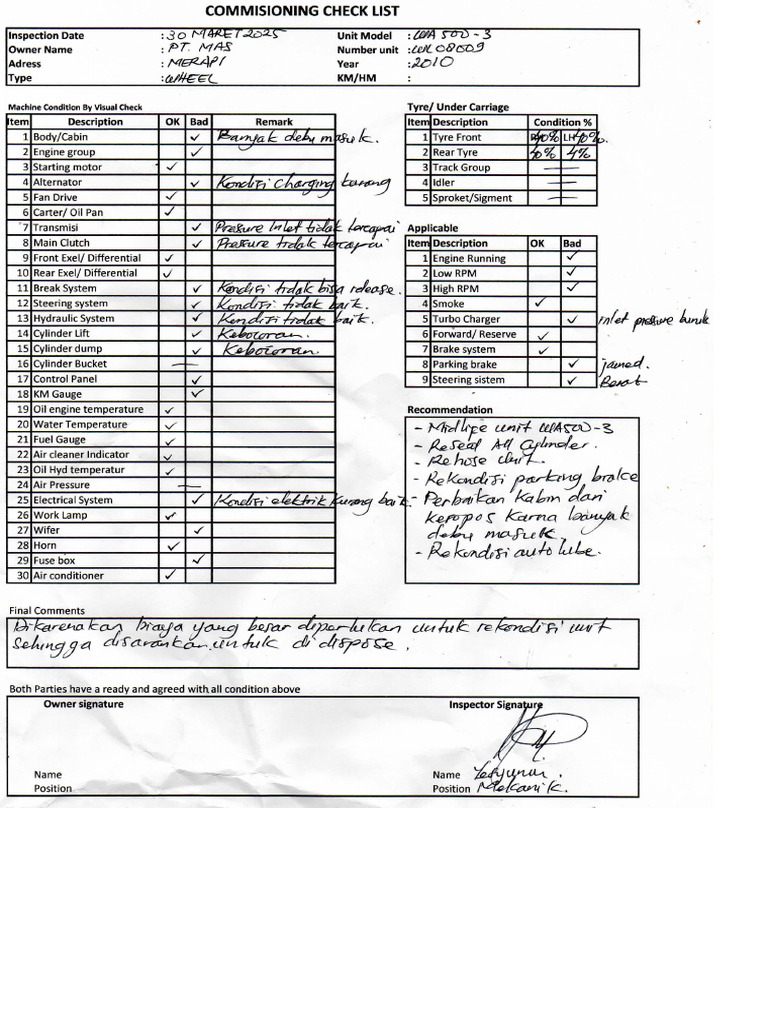 COMMISIONING CHECK LIST
Inspection Date : 30 MARET 2025 Unit Model : WA 500-3
Owner Name : PT. MAS Number unit : WL 08009
Adress : MERAPI Year : 2010
Type : WHEEL KM/HM :
Machine Condition By Visual Check
Item Description OK Bad Remark
1 Body/Cabin ✓ Banyak debu masuk.
2 Engine group ✓
3 Starting motor ✓
4 Alternator ✓ Kondisi Charging kurang
5 Fan Drive ✓
6 Carter/ Oil Pan ✓
7 Transmisi ✓ Pressure Inlet tidak tercapai
8 Main Clutch ✓ Pressure tidak tercapai
9 Front Exel/ Differential ✓
10 Rear Exel/ Differential ✓
11 Break System ✓ Kondisi tidak bisa release.
12 Steering system ✓ Kondisi tidak baik.
13 Hydraulic System ✓ Kondisi tidak baik.
14 Cylinder Lift ✓ Kebocoran.
15 Cylinder dump ✓ Kebocoran.
16 Cylinder Bucket —
17 Control Panel ✓
18 KM Gauge ✓
19 Oil engine temperature ✓
20 Water Temperature ✓
21 Fuel Gauge ✓
22 Air cleaner Indicator ✓
23 Oil Hyd temperatur ✓
24 Air Pressure —
25 Electrical System ✓ Kondisi elektrik kurang baik
26 Work Lamp ✓
27 Wifer ✓
28 Horn ✓
29 Fuse box ✓
30 Air conditioner ✓
Tyre/ Under Carriage
Item Description Condition %
1 Tyre Front 40% LH 40%.
2 Rear Tyre 40% 4%
3 Track Group —
4 Idler —
5 Sproket/Sigment —
Applicable
Item Description OK Bad
1 Engine Running ✓
2 Low RPM ✓
3 High RPM ✓
4 Smoke ✓
5 Turbo Charger ✓ inlet pressure buruk
6 Forward/ Reserve ✓
7 Brake system ✓
8 Parking brake ✓ jamed.
9 Steering sistem ✓ Berat
Recommendation
- Midlife unit WA500-3
- Reseal All Cylinder.
- Rehose Unit.
- Rekondisi parking brake
- Perbaikan kabin dari
keropos karna banyak
debu masuk.
- Rekondisi auto lube.
Final Comments
Dikarenakan biaya yang besar diperlukan untuk rekondisi unit
sehingga disarankan untuk di dispose.
Both Parties have a ready and agreed with all condition above
Owner signature Inspector Signature
Name Name
Position Position Mekanik.